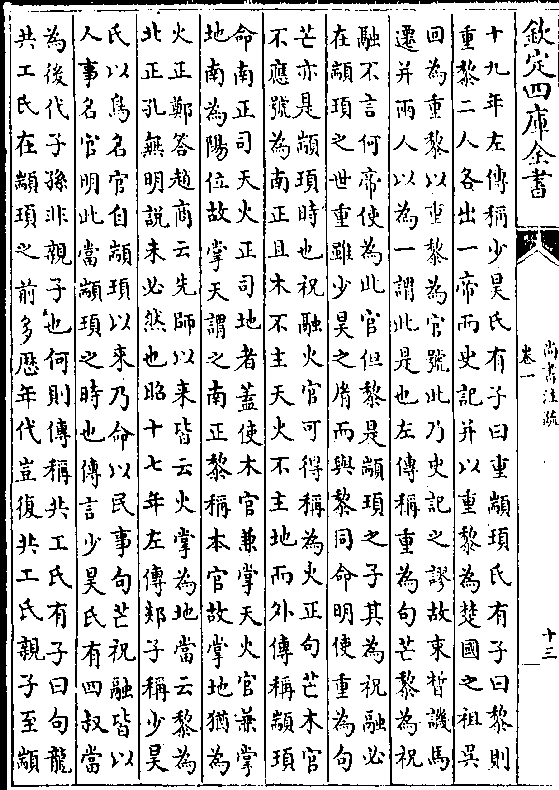 欽定四庫全書
尚書注疏
卷一
十三
十九年左傳稱少昊氏有子曰重顓頊氏有子曰黎則
重黎二人各出一帝而史記并以重黎為楚國之祖吳
回為重黎以重黎為官號此乃史記之謬故束皙譏馬
遷并兩人以為一謂此是也左傳稱重為句芒黎為祝
融不言何帝使為此官但黎是顓頊之子其為祝融必
在顓頊之世重雖少昊之胄而與黎同命明使重為句
芒亦是顓頊時也祝融火官可得稱為火正句芒木官
不應號為南正且木不主天火不主地而外傳稱顓頊
命南正司天火正司地者蓋使木官兼掌天火官兼掌
地南為陽位故掌天謂之南正黎稱本官故掌地猶為
火正鄭答趙商云先師以來皆云火掌為地當云黎為
北正孔無明說未必然也昭十七年左傳郯子稱少昊
氏以鳥名官自顓頊以來乃命以民事句芒祝融皆以
人事名官明此當顓頊之時也傳言少昊氏有四叔當
為後代子孫非親子也何則傳稱共工氏有子曰句龍
共工氏在顓頊之前多歷年代豈復共工氏親子至顓